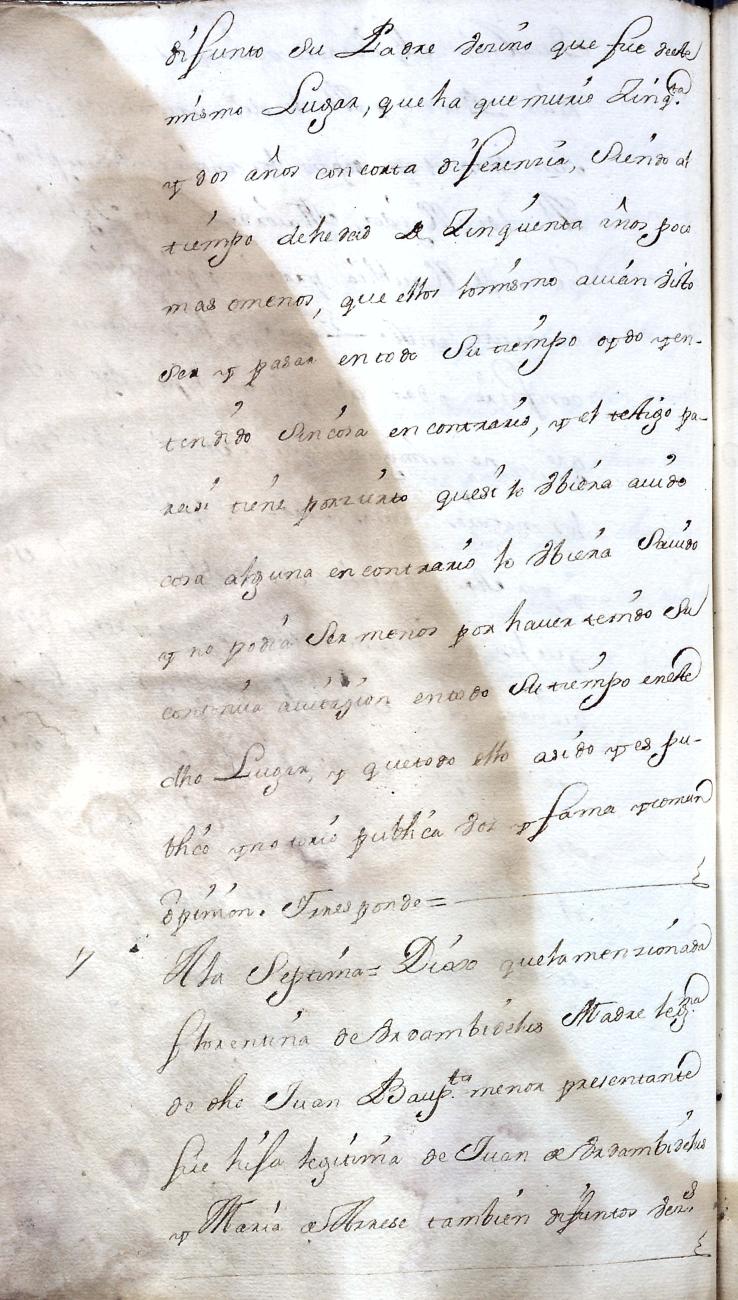 difunto su Padre vezino que fue deste
mismo Lugar, que ha que murio Zinq.ta
y dos años con corta diferenzia, siendo al
tiempo de hedad de Zinquenta años poco
mas omenos, que ellos lo mismo auian visto
ser y pasar en todo su tiempo oydo y en-
tendido sin cosa en contrario, y el testigo pa-
rasi tiene por zierto que si lo vbiera auido
cosa alguna en contrario lo vbiera sauido
y no podia ser menos por hauer tenido su
continua auitazion en todo su tiempo en este
dho Lugar, y que todo ello asido y es pu-
blico y notorio publica voz y fama y comun
opinion. Y responde =
7 Ala Septima = Dixo que la menzionada
florentina de Vrdambidelus Madre leg.ma
de dho Juan Baup.ta menor presentante
fue hija legitima de Juan de Vrdambidelus
y Maria de tambien difuntos vez.s